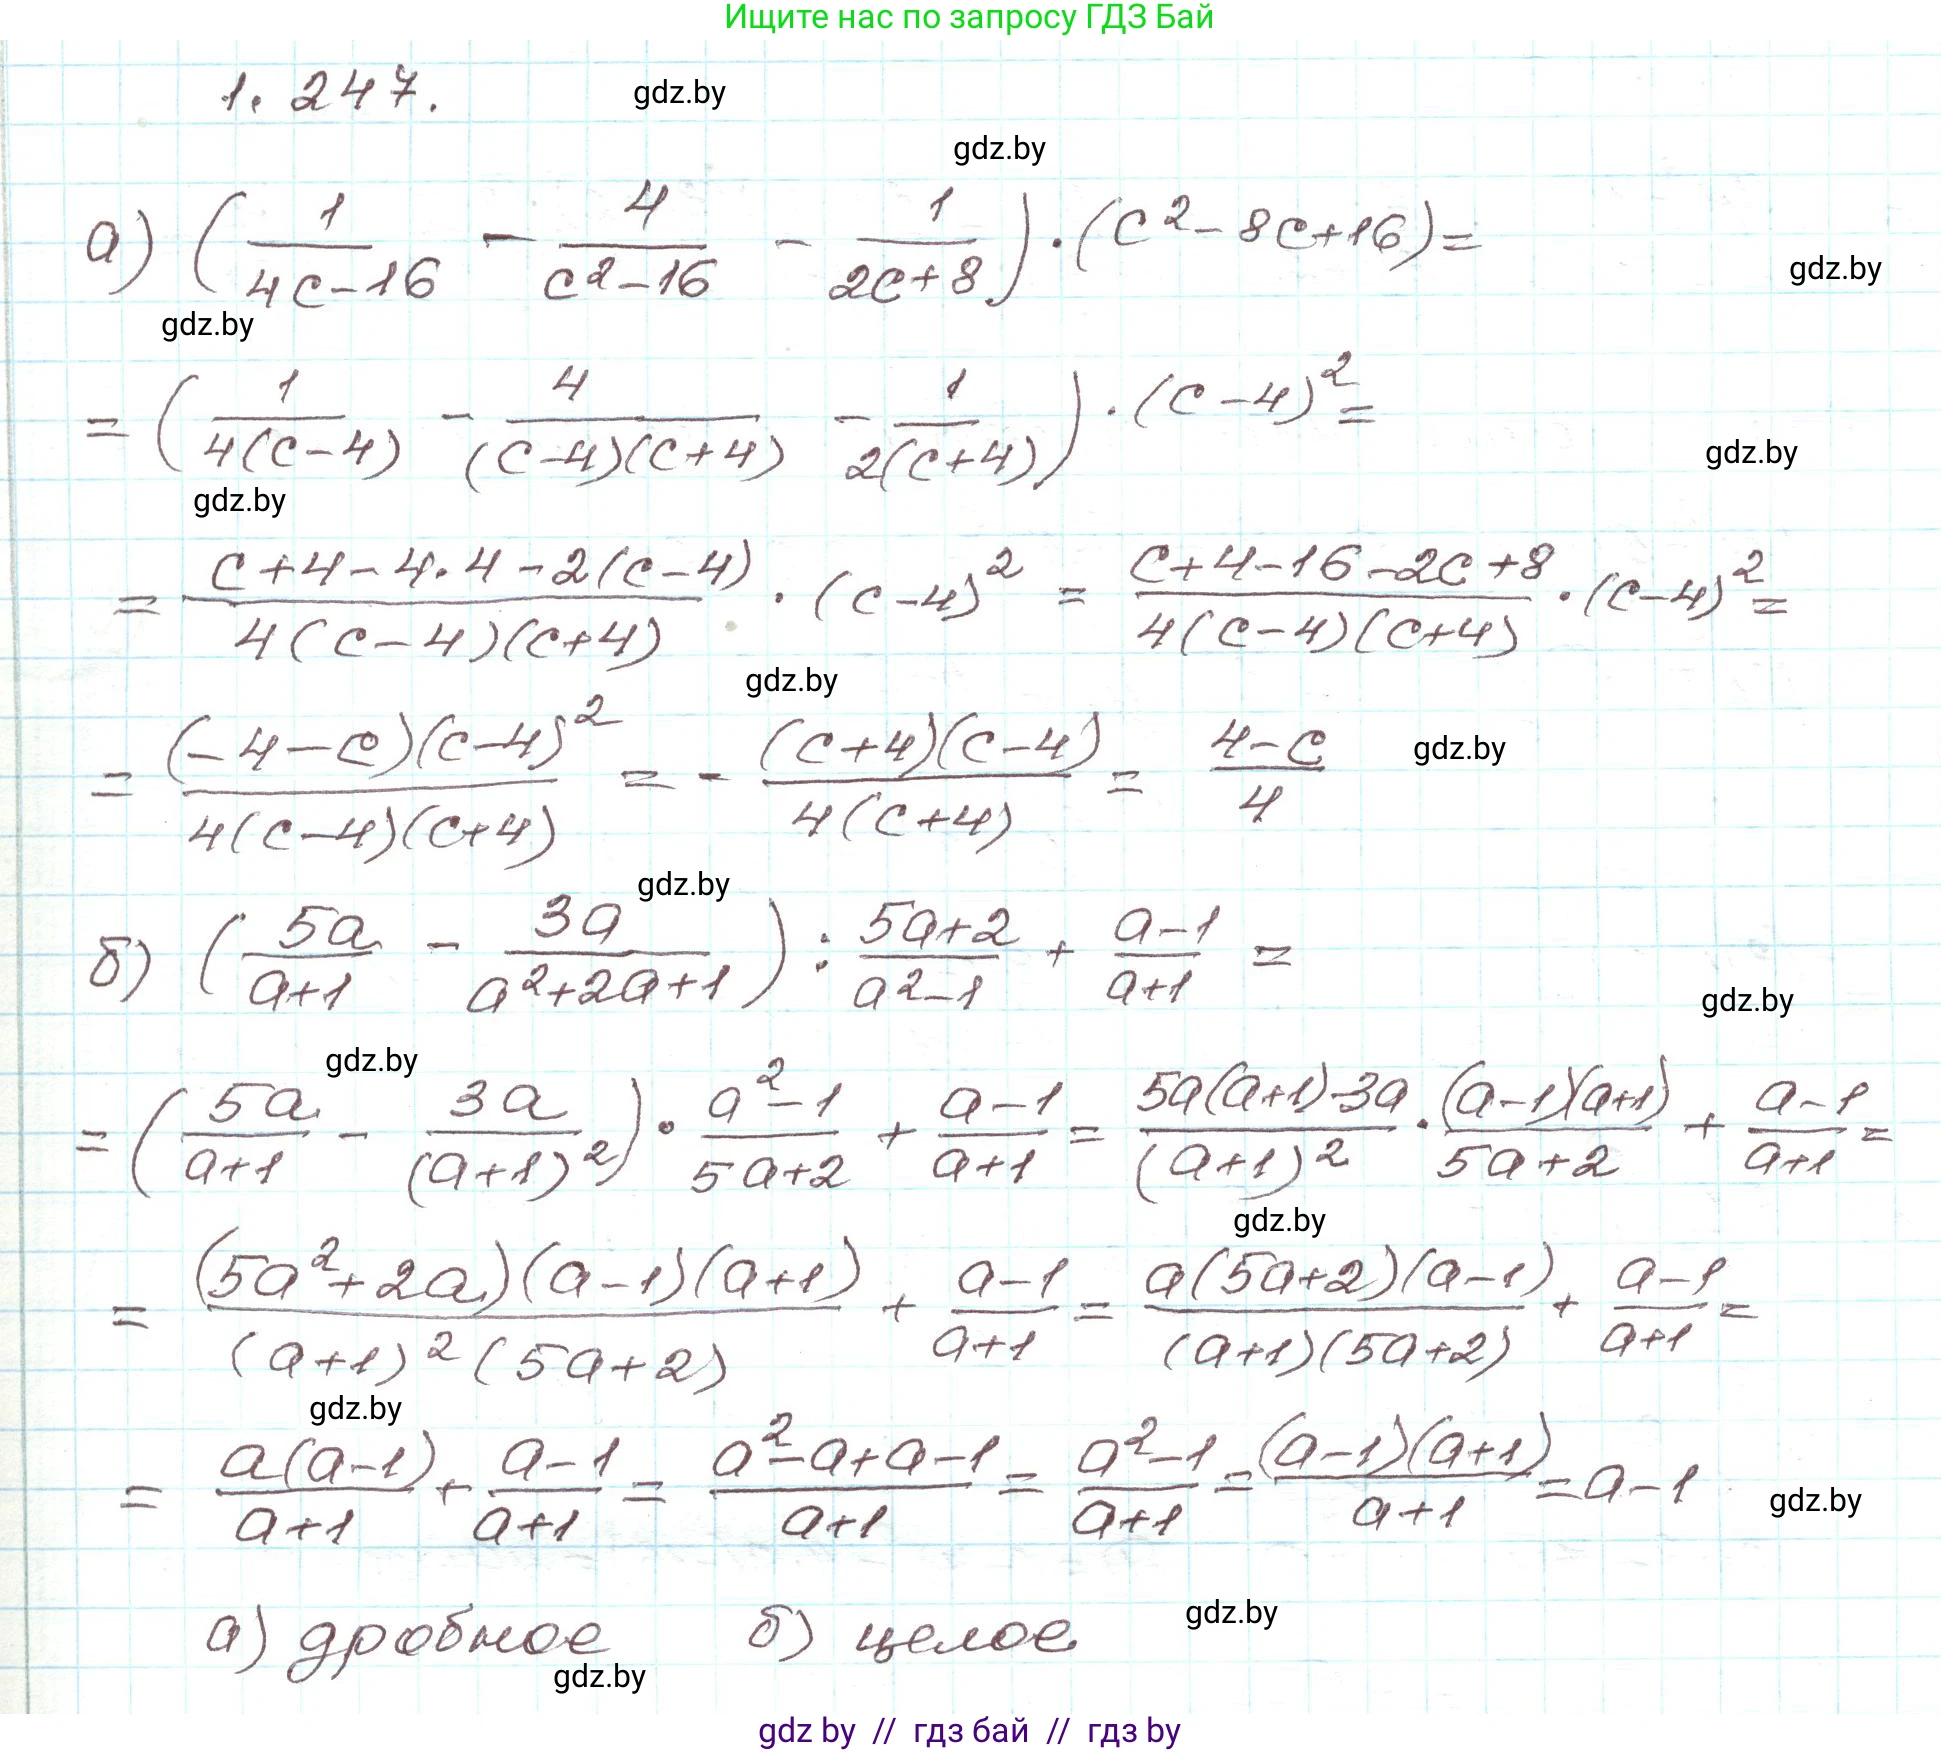 Ищите нас по запросу ГДЗ Бай
1.247. gdz.by
gdz.by
а) (1/(4c-16) - 4/(c²-16) - 1/(2c+8)) · (c²-8c+16) =
gdz.by
gdz.by
= (1/(4(c-4)) - 4/((c-4)(c+4)) - 1/(2(c+4))) · (c-4)² =
gdz.by
gdz.by
= (c+4-4·4-2(c-4))/(4(c-4)(c+4)) · (c-4)² = (c+4-16-2c+8)/(4(c-4)(c+4)) · (c-4)² =
gdz.by
= ((-4-c)(c-4)²)/(4(c-4)(c+4)) = - ((c+4)(c-4))/(4(c+4)) = (4-c)/4 gdz.by
gdz.by
б) (5a/(a+1) - 3a/(a²+2a+1)) : (5a+2)/(a²-1) + (a-1)/(a+1) =
gdz.by
gdz.by
= (5a/(a+1) - 3a/(a+1)²) · (a²-1)/(5a+2) + (a-1)/(a+1) = (5a(a+1)-3a)/(a+1)² · ((a-1)(a+1))/(5a+2) + (a-1)/(a+1) =
gdz.by
= ((5a²+2a)(a-1)(a+1))/((a+1)²(5a+2)) + (a-1)/(a+1) = (a(5a+2)(a-1))/((a+1)(5a+2)) + (a-1)/(a+1) =
gdz.by
= (a(a-1))/(a+1) + (a-1)/(a+1) = (a²-a+a-1)/(a+1) = (a²-1)/(a+1) = ((a-1)(a+1))/(a+1) = a-1 gdz.by
gdz.by
а) дробное б) целое
gdz.by
gdz by // гдз бай // гдз by